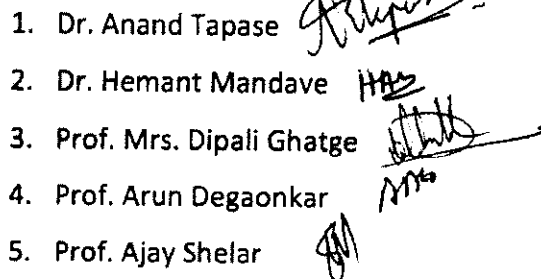 1. Dr. Anand Tapase
2. Dr. Hemant Mandave
3. Prof. Mrs. Dipali Ghatge
4. Prof. Arun Degaonkar
5. Prof. Ajay Shelar